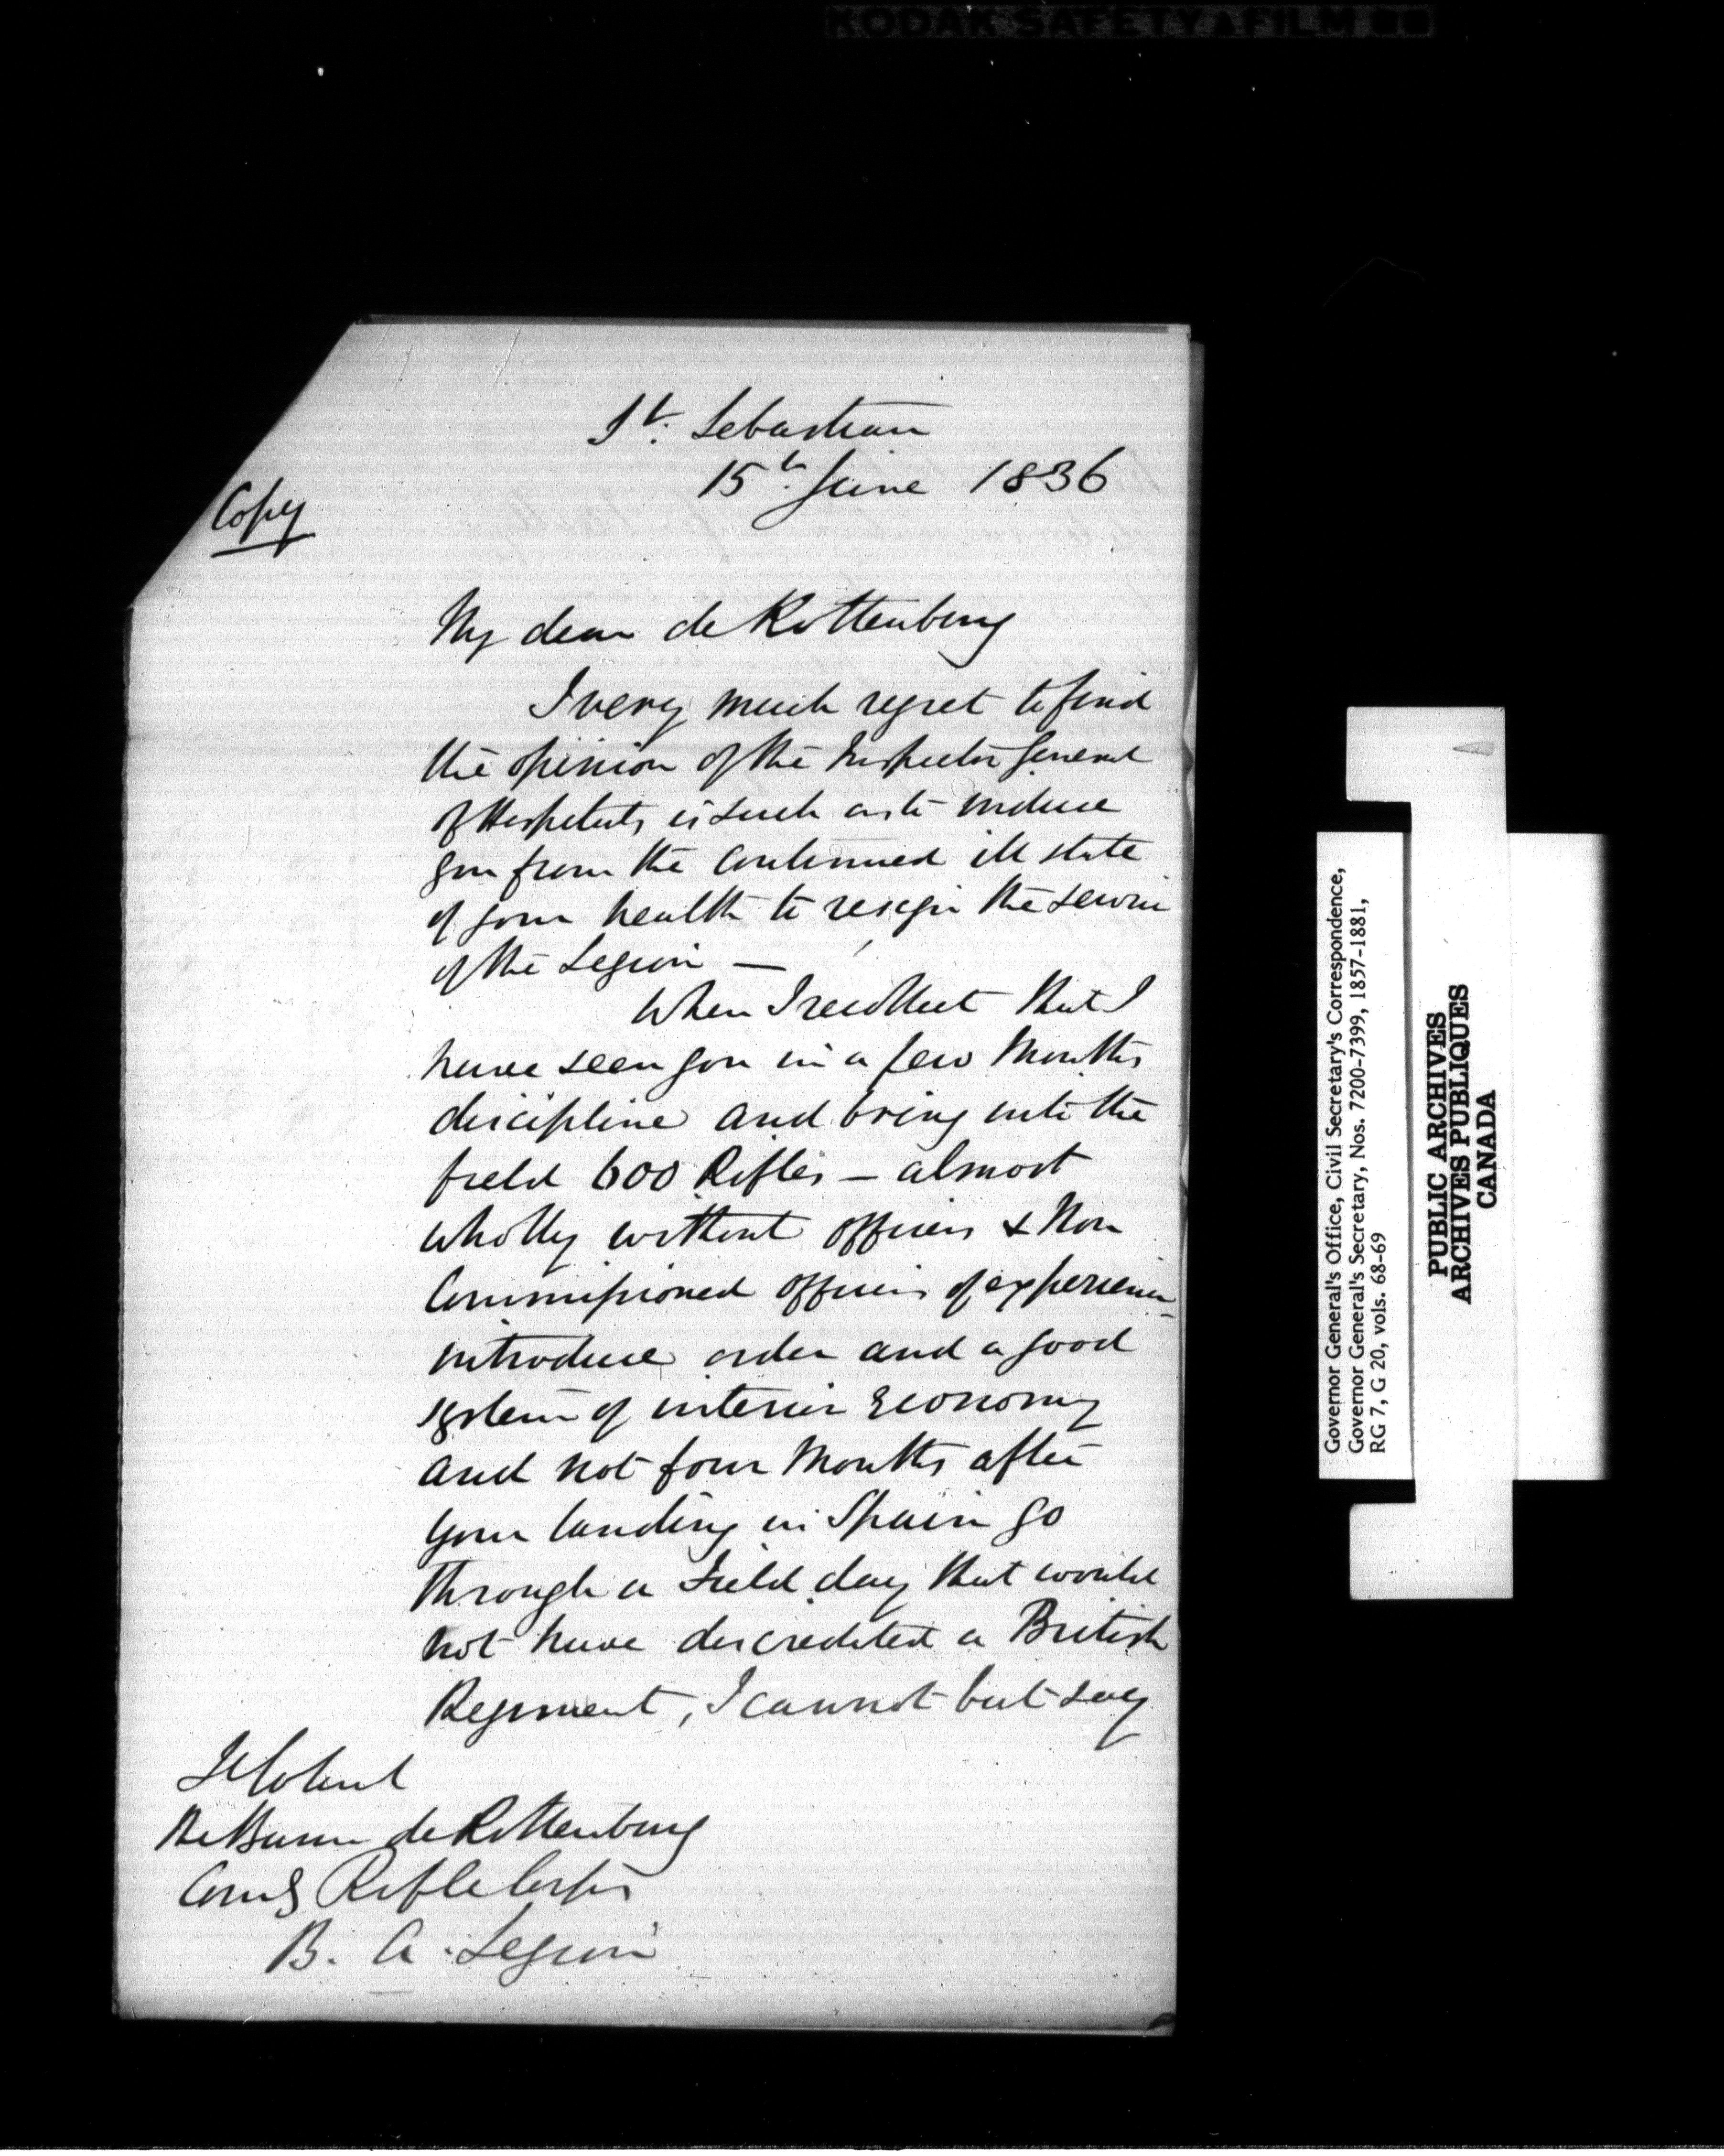 KODAK SAFETY FILM
St. Sebastian
15th June 1836
Copy
My dear de Rottenburg
I very much regret to find
the opinion of the Inspector General
of Hospitals is such as to induce
you from the continued ill state
of your health to resign the service
of the Legion —
When I recollect that I
have seen you in a few Months
discipline and bring into the
field 600 Rifles — almost
wholly without officers & Non
Commissioned officers of experience
introduce order and a good
system of interior Economy
and not four Months after
your landing in Spain go
through a Field day that would
not have discredited a British
Regiment, I cannot but say
Lt Colonel
The Baron de Rottenburg
Comg Rifle Corps
B. A. Legion
Governor General's Office, Civil Secretary's Correspondence,
Governor General's Secretary, Nos. 7200-7399, 1857-1881,
RG 7, G 20, vols. 68-69
PUBLIC ARCHIVES
ARCHIVES PUBLIQUES
CANADA